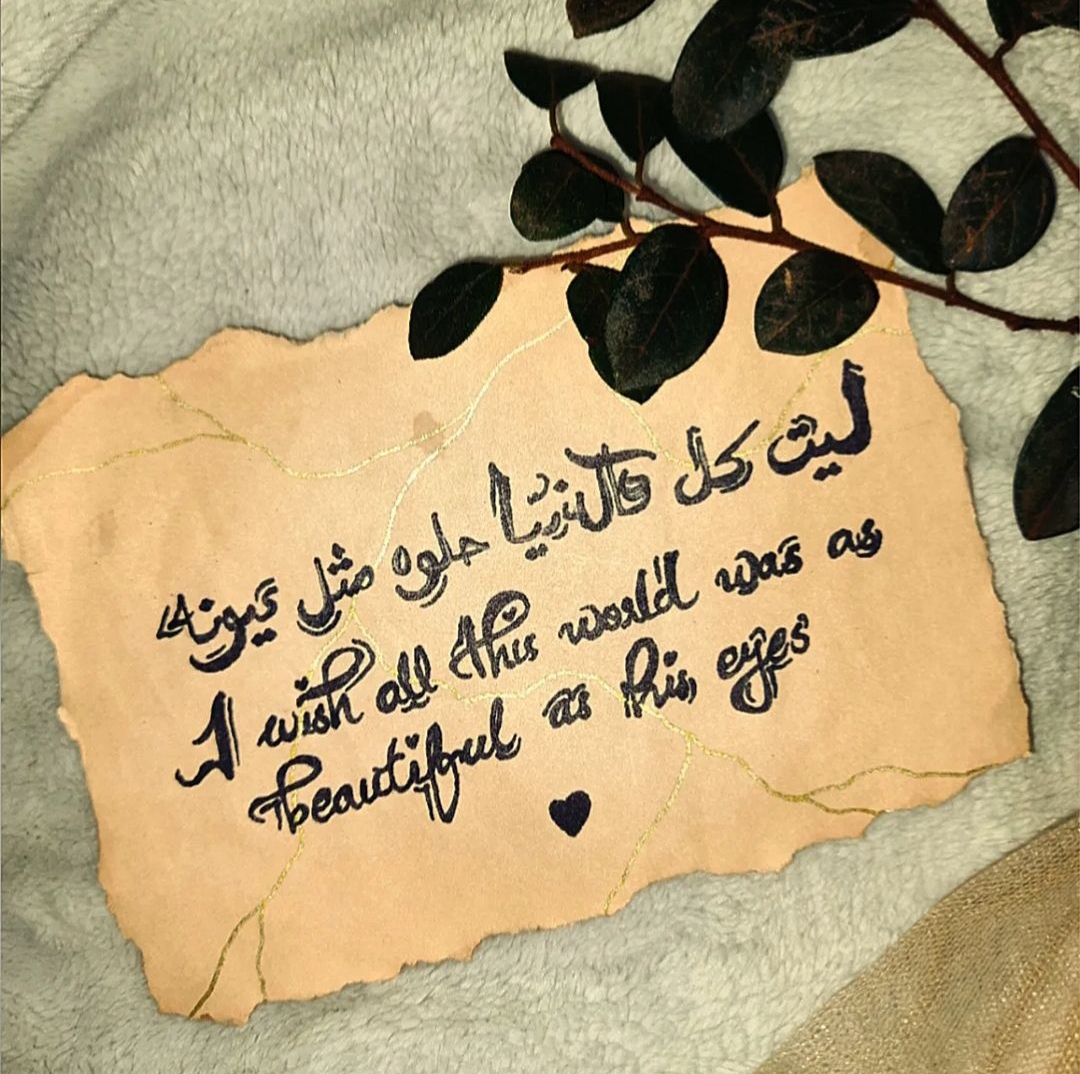 ليت كل فالدنيا حلوه مثل عيونه
I wish all this world was as
beautiful as his eyes